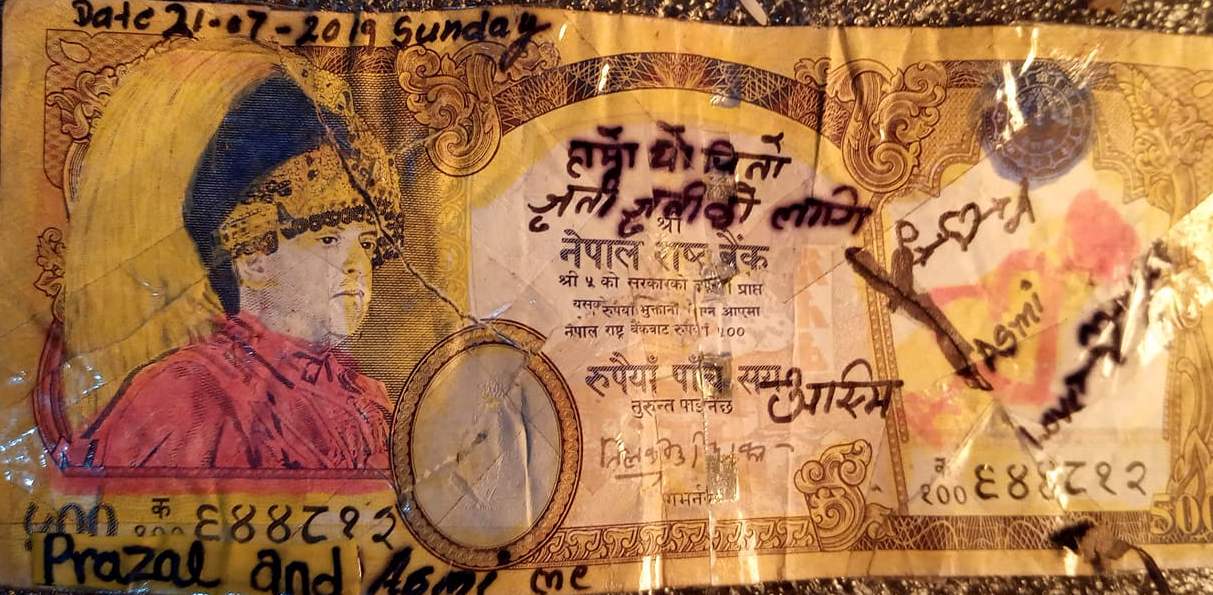 Date 21-07-2019 Sunday
हाम्रो यो चिनो
जुनी जुनीको लागि
श्री
नेपाल राष्ट्र बैंक
श्री ५ को सरकारको प्राप्त
रुपैयाँ भुक्तानी आएमा
नेपाल राष्ट्र बैंकबाट ५००
रुपैयाँ पाँच सय
तुरुन्त पाइनेछ
आस्मि
गभर्नर
P ♡ A
Asmi
Love
क
१०० ६४४८१२
५०० क
१०० ६४४८१२
500
Prazal and Asmi me